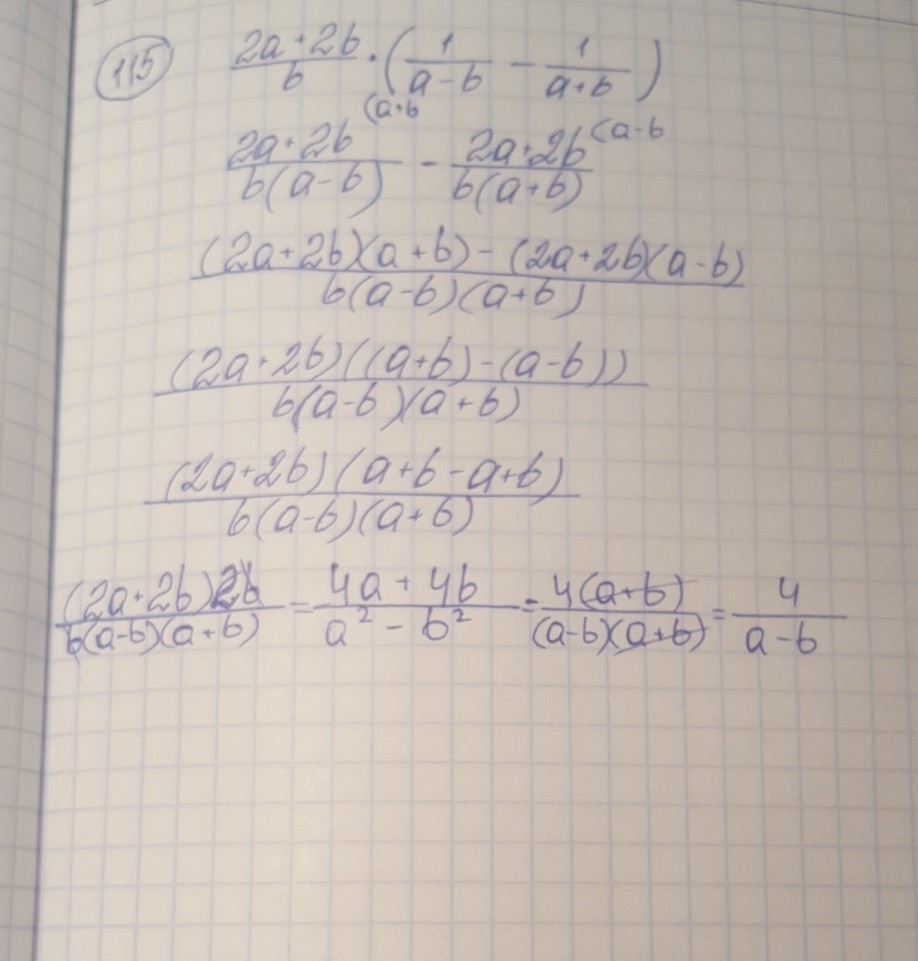 115 (2a+2b)/b · (1/(a-b) - 1/(a+b))
(2a+2b)/(b(a-b)) (a+b - (2a+2b)/(b(a+b)) (a-b
((2a+2b)(a+b)-(2a+2b)(a-b))/(b(a-b)(a+b))
((2a+2b)((a+b)-(a-b)))/(b(a-b)(a+b))
((2a+2b)(a+b-a+b))/(b(a-b)(a+b))
((2a+2b)2b)/(b(a-b)(a+b)) = (4a+4b)/(a²-b²) = (4(a+b))/((a-b)(a+b)) = 4/(a-b)